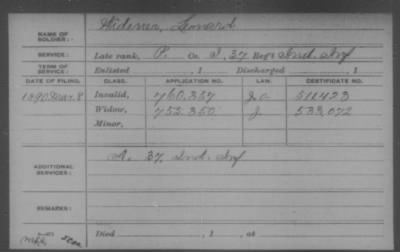 NAME OF SOLDIER: Widener, Leonard
SERVICE: Late rank, P. Co. I, 37 Reg't Ind. Inf
TERM OF SERVICE: Enlisted , 1 Discharged , 1
DATE OF FILING. CLASS. APPLICATION NO. LAW. CERTIFICATE NO.
1890 Mar. 8 Invalid, 760.357 511423
Widow, 752.350 533,072
Minor,
ADDITIONAL SERVICES: 37 Ind. Inf
REMARKS:
Died , 1 , at